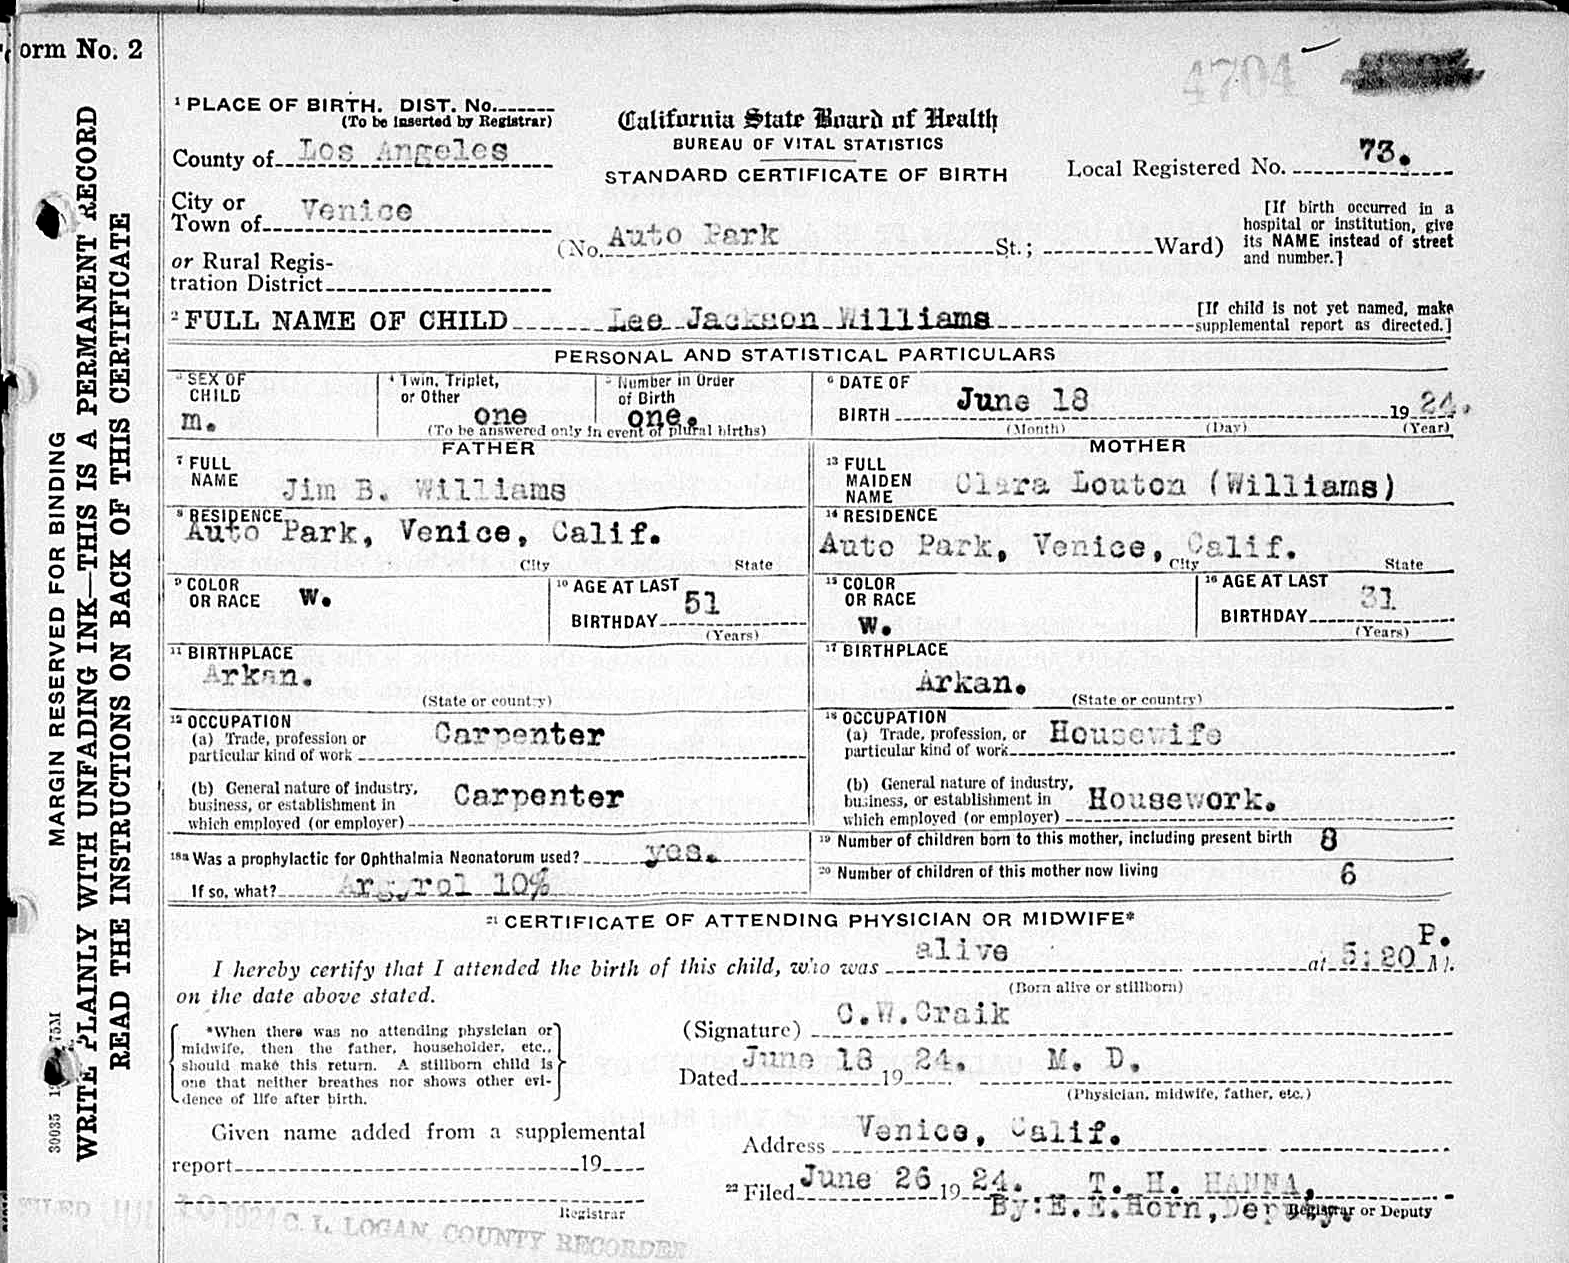 orm No. 2
4704
MARGIN RESERVED FOR BINDING
WRITE PLAINLY WITH UNFADING INK—THIS IS A PERMANENT RECORD
READ THE INSTRUCTIONS ON BACK OF THIS CERTIFICATE
1 PLACE OF BIRTH. DIST. No.
(To be inserted by Registrar)
County of Los Angeles
City or
Town of Venice
or Rural Regis-
tration District
California State Board of Health
BUREAU OF VITAL STATISTICS
STANDARD CERTIFICATE OF BIRTH
Local Registered No. 73.
(No. Auto Park St.; Ward)
[If birth occurred in a
hospital or institution, give
its NAME instead of street
and number.]
2 FULL NAME OF CHILD Lee Jackson Williams
[If child is not yet named, make
supplemental report as directed.]
PERSONAL AND STATISTICAL PARTICULARS
3 SEX OF
CHILD
m.
4 Twin, Triplet,
or Other
one
5 Number in Order
of Birth
one.
(To be answered only in event of plural births)
6 DATE OF
BIRTH June 18 19 24.
(Month) (Day) (Year)
FATHER
7 FULL
NAME Jim B. Williams
8 RESIDENCE
Auto Park, Venice, Calif.
City State
9 COLOR
OR RACE w.
10 AGE AT LAST
BIRTHDAY 51
(Years)
11 BIRTHPLACE
Arkan.
(State or country)
12 OCCUPATION
(a) Trade, profession or
particular kind of work Carpenter
(b) General nature of industry,
business, or establishment in
which employed (or employer) Carpenter
MOTHER
13 FULL
MAIDEN
NAME Clara Louton (Williams)
14 RESIDENCE
Auto Park, Venice, Calif.
City State
15 COLOR
OR RACE
w.
16 AGE AT LAST
BIRTHDAY 31
(Years)
17 BIRTHPLACE
Arkan.
(State or country)
18 OCCUPATION
(a) Trade, profession, or
particular kind of work Housewife
(b) General nature of industry,
business, or establishment in
which employed (or employer) Housework.
18a Was a prophylactic for Ophthalmia Neonatorum used? yes.
If so, what? Argyrol 10%
19 Number of children born to this mother, including present birth 8
20 Number of children of this mother now living 6
21 CERTIFICATE OF ATTENDING PHYSICIAN OR MIDWIFE*
I hereby certify that I attended the birth of this child, who was alive at 5:20 P. M.
(Born alive or stillborn)
on the date above stated.
*When there was no attending physician or
midwife, then the father, householder, etc.,
should make this return. A stillborn child is
one that neither breathes nor shows other evi-
dence of life after birth.
(Signature) C.W.Craik
Dated June 18 19 24. M. D.
(Physician, midwife, father, etc.)
Given name added from a supplemental
report 19
Registrar
Address Venice, Calif.
22 Filed June 26 19 24. T. H. HANNA,
By:E.E.Horn,Deputy.
Registrar or Deputy
FILED JUL 10 1924 C. L. LOGAN COUNTY RECORDER
30035 75M